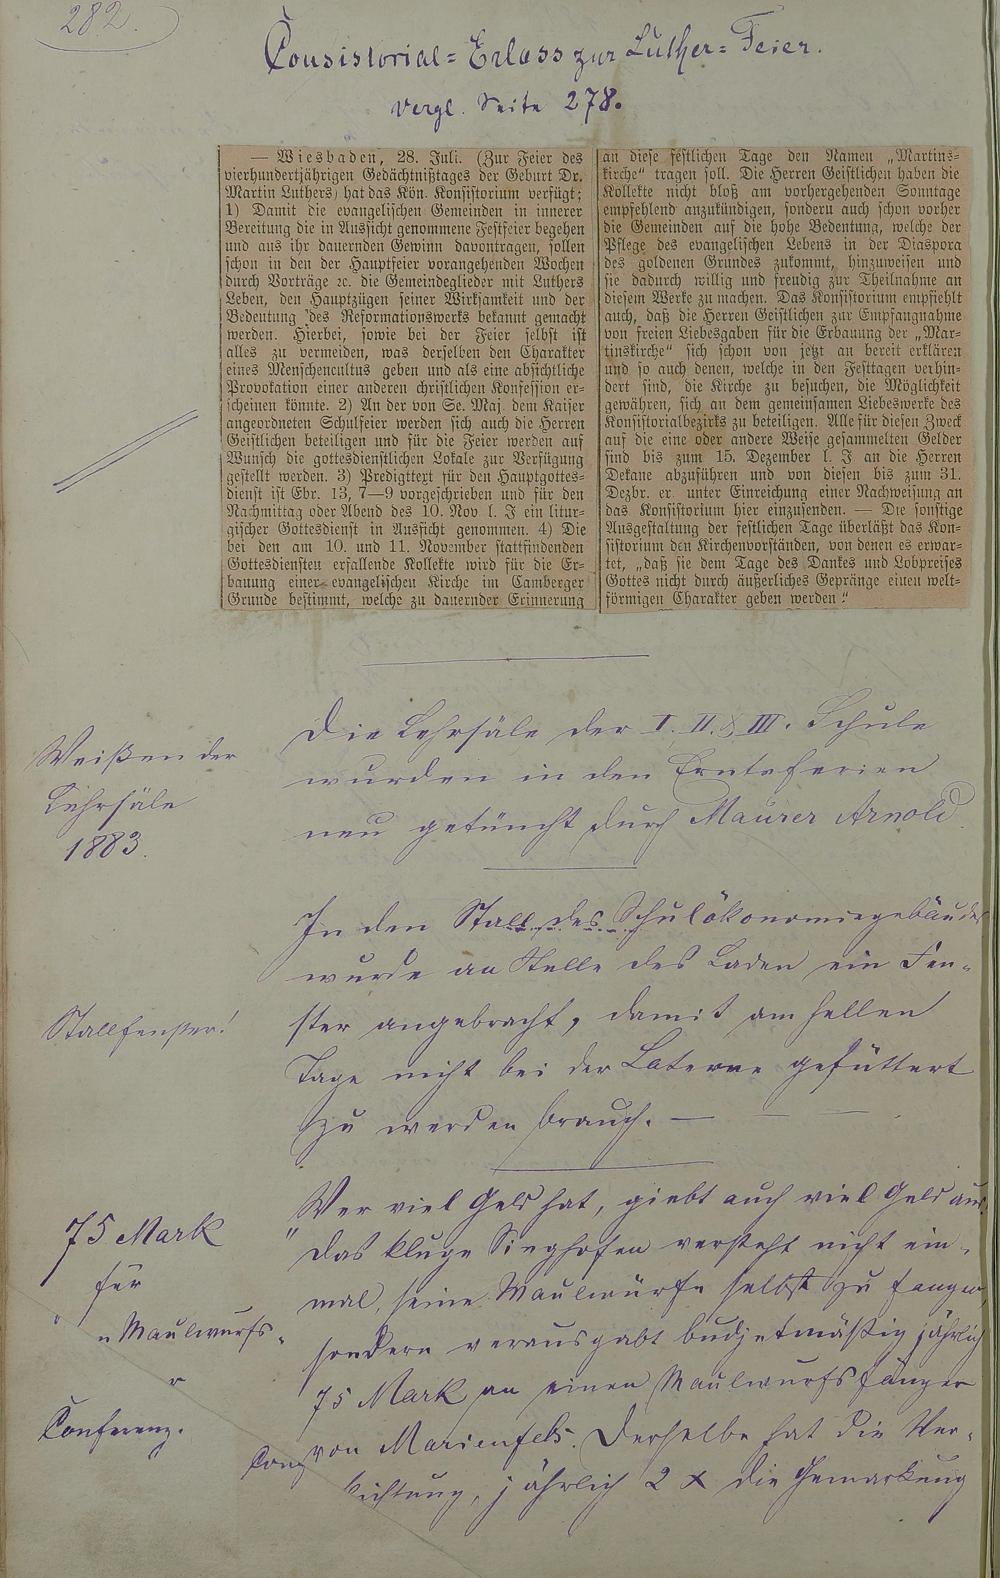 282.
Consistorial=Erlass zur Luther=Feier.
Vergl. Seite 278.
— Wiesbaden, 28. Juli. (Zur Feier des
vierhundertjährigen Gedächtnißtages der Geburt Dr.
Martin Luthers) hat das Kön. Konsistorium verfügt:
1) Damit die evangelischen Gemeinden in innerer
Bereitung die in Aussicht genommene Festfeier begehen
und aus ihr dauernden Gewinn davontragen, sollen
schon in den der Hauptfeier vorangehenden Wochen
durch Vorträge ꝛc. die Gemeindeglieder mit Luthers
Leben, den Hauptzügen seiner Wirksamkeit und der
Bedeutung des Reformationswerks bekannt gemacht
werden. Hierbei, sowie bei der Feier selbst ist
alles zu vermeiden, was derselben den Charakter
eines Menschencultus geben und als eine absichtliche
Provokation einer anderen christlichen Konfession er-
scheinen könnte. 2) An der von Se. Maj. dem Kaiser
angeordneten Schulfeier werden sich auch die Herren
Geistlichen beteiligen und für die Feier werden auf
Wunsch die gottesdienstlichen Lokale zur Verfügung
gestellt werden. 3) Predigttext für den Hauptgottes-
dienst ist Ebr. 13, 7—9 vorgeschrieben und für den
Nachmittag oder Abend des 10. Nov l. J ein litur-
gischer Gottesdienst in Aussicht genommen. 4) Die
bei den am 10. und 11. November stattfindenden
Gottesdiensten erfallende Kollekte wird für die Er-
bauung einer evangelischen Kirche im Camberger
Grunde bestimmt, welche zu dauernder Erinnerung
an diese festlichen Tage den Namen „Martins-
kirche“ tragen soll. Die Herren Geistlichen haben die
Kollekte nicht bloß am vorhergehenden Sonntage
empfehlend anzukündigen, sondern auch schon vorher
die Gemeinden auf die hohe Bedeutung, welche der
Pflege des evangelischen Lebens in der Diaspora
des goldenen Grundes zukommt, hinzuweisen und
sie dadurch willig und freudig zur Theilnahme an
diesem Werke zu machen. Das Konsistorium empfiehlt
auch, daß die Herren Geistlichen zur Empfangnahme
von freien Liebesgaben für die Erbauung der „Mar-
tinskirche“ sich schon von jetzt an bereit erklären
und so auch denen, welche in den Festtagen verhin-
dert sind, die Kirche zu besuchen, die Möglichkeit
gewähren, sich an dem gemeinsamen Liebeswerke des
Konsistorialbezirks zu beteiligen. Alle für diesen Zweck
auf die eine oder andere Weise gesammelten Gelder
sind bis zum 15. Dezember l. J an die Herren
Dekane abzuführen und von diesen bis zum 31.
Dezbr. er. unter Einreichung einer Nachweisung an
das Konsistorium hier einzusenden. — Die sonstige
Ausgestaltung der festlichen Tage überläßt das Kon-
sistorium den Kirchenvorständen, von denen es erwar-
tet, „daß sie dem Tage des Dankes und Lobpreises
Gottes nicht durch äußerliches Gepränge einen welt-
förmigen Charakter geben werden.“
Weißen der
Lehrsäle
1883.
Die Lehrsäle der I. II. & III. Schule
wurden in den Ernteferien
neu getüncht durch Maurer Arnold.
In den Stall des Schulökonomiegebäudes
wurde an Stelle des Laden ein Fen-
ster angebracht, damit am hellen
Tage nicht bei der Laterne gefüttert
zu werden brauch. —
Stallfenster!
75 Mark
für
„Maulwurfs-
Conferenz.
Wer viel Geld hat, giebt auch viel Geld aus.
„Das kluge Singhofen versteht nicht ein-
mal, seine Maulwürfe selbst zu fangen,
sondern verausgabt budjetmäßig jährlich
75 Mark an einen Maulwurfsfänger
von Marienfels. Derselbe hat die Ver-
lichtung, jährlich 2 x die Gemarkung